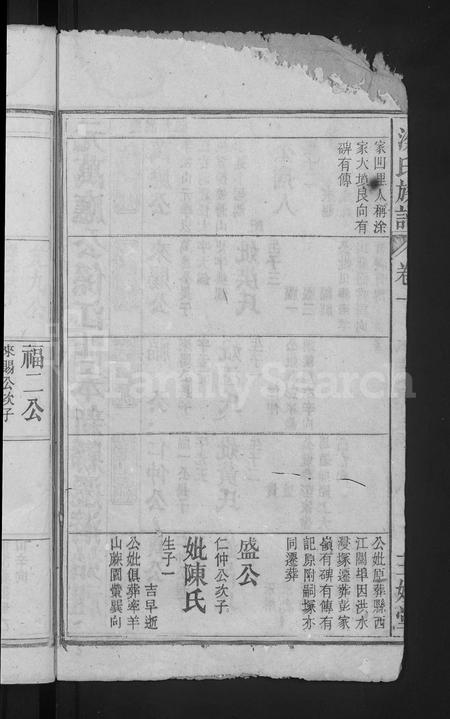 家凹里人稱涂
家大墳艮向有
碑有傳
公妣原葬縣西
江關埠因洪水
漫塚遷葬彭家
嶺有碑有傳有
記原附嗣塚亦
同遷葬
盛公
仁仲公次子
妣陳氏
生子一
吉早逝
公妣俱葬寧羊
山蕨園螢巽向
福二公
來賜公次子
氏族譜
卷一
FamilySearch